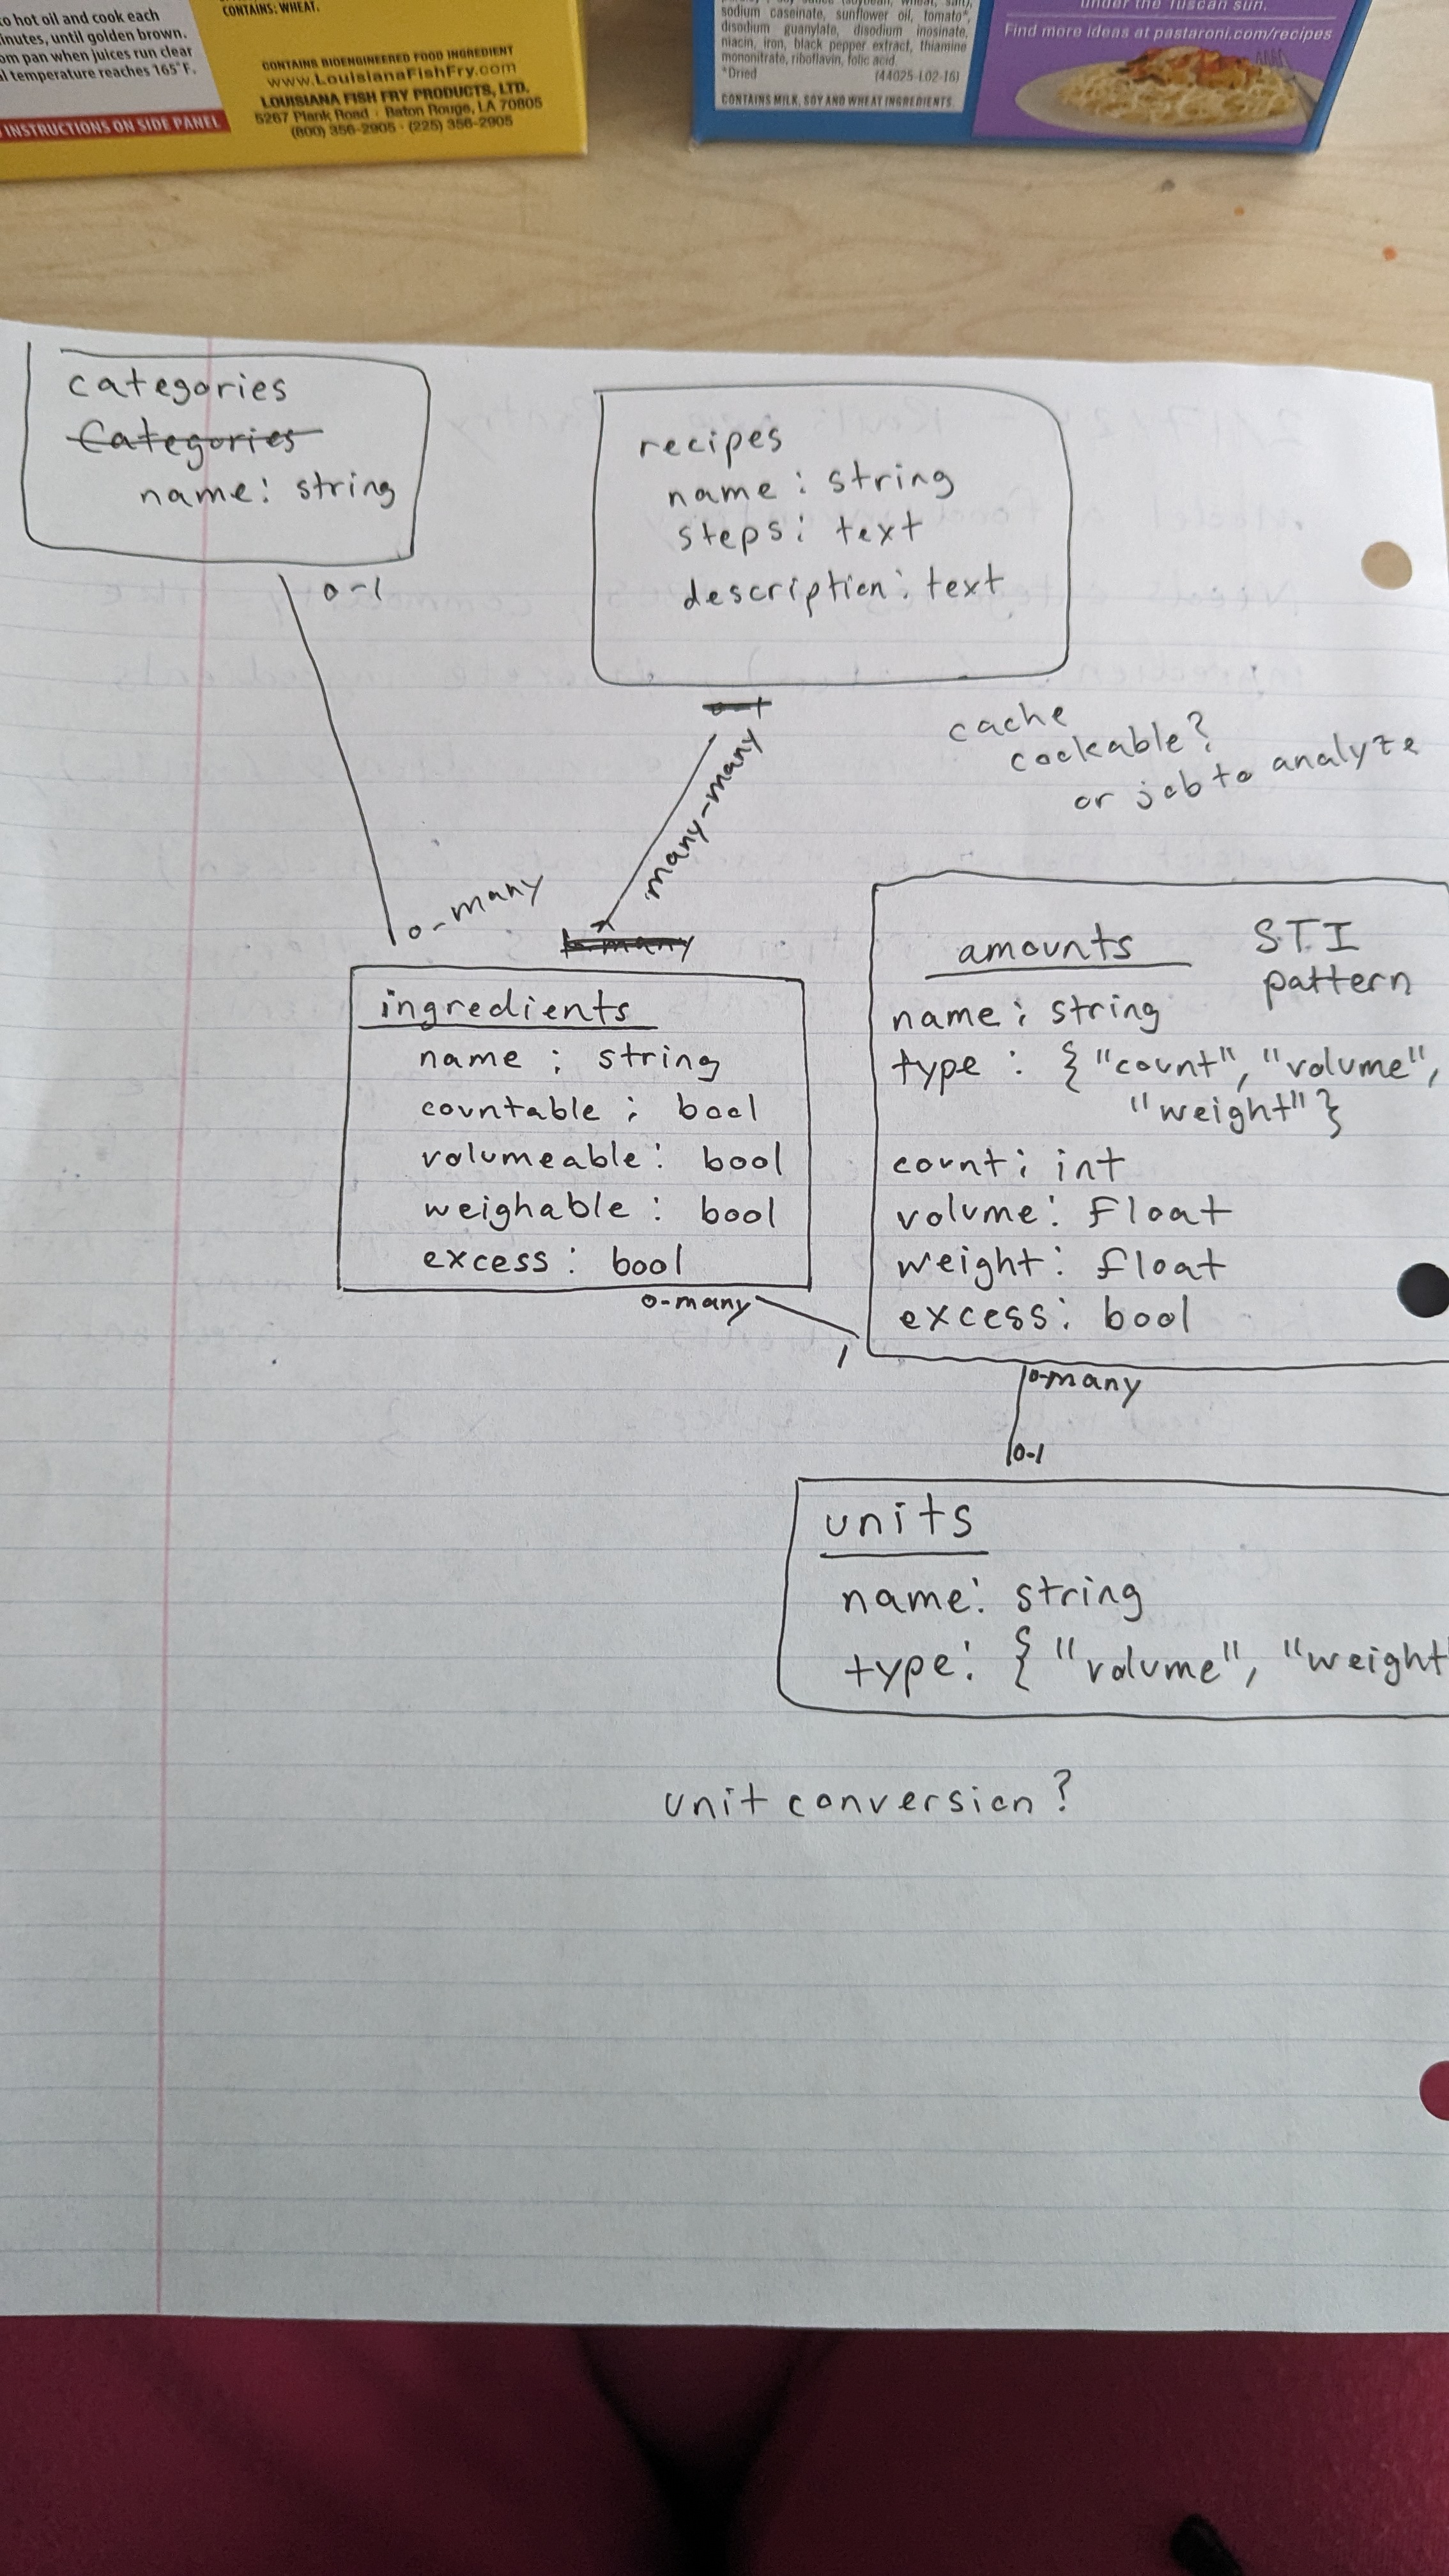 o hot oil and cook each
inutes, until golden brown.
om pan when juices run clear
l temperature reaches 165°F.
INSTRUCTIONS ON SIDE PANEL
CONTAINS: WHEAT.
CONTAINS BIOENGINEERED FOOD INGREDIENT
www.LouisianaFishFry.com
LOUISIANA FISH FRY PRODUCTS, LTD.
5267 Plank Road · Baton Rouge, LA 70805
(800) 356-2905 · (225) 356-2905
sodium caseinate, sunflower oil, tomato*,
disodium guanylate, disodium inosinate,
niacin, iron, black pepper extract, thiamine
mononitrate, riboflavin, folic acid.
*Dried (44025-L02-16)
CONTAINS MILK, SOY AND WHEAT INGREDIENTS.
under the Tuscan sun.
Find more ideas at pastaroni.com/recipes
categories
Categories
name: string
0-1
recipes
name: string
steps: text
description: text
many-many
cache
cookable?
or job to analyze
0-many
many
ingredients
name: string
countable: bool
volumeable: bool
weighable: bool
excess: bool
0-many
1
amounts
STI
pattern
name: string
type: { "count", "volume",
"weight" }
count: int
volume: float
weight: float
excess: bool
0-many
0-1
units
name: string
type: { "volume", "weight
unit conversion?